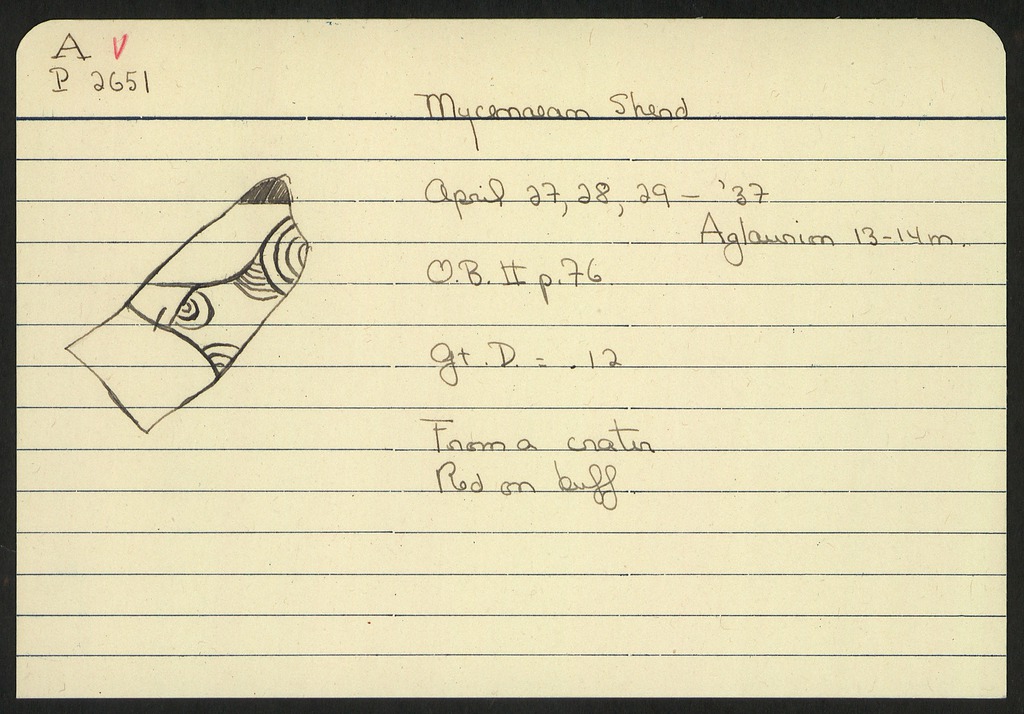 A V
P 2651
Mycenaean Sherd
April 27, 28, 29 – '37
Aglaurion 13-14 m.
O.B. II p. 76
Gt. D. = .12
From a crater
Red on buff